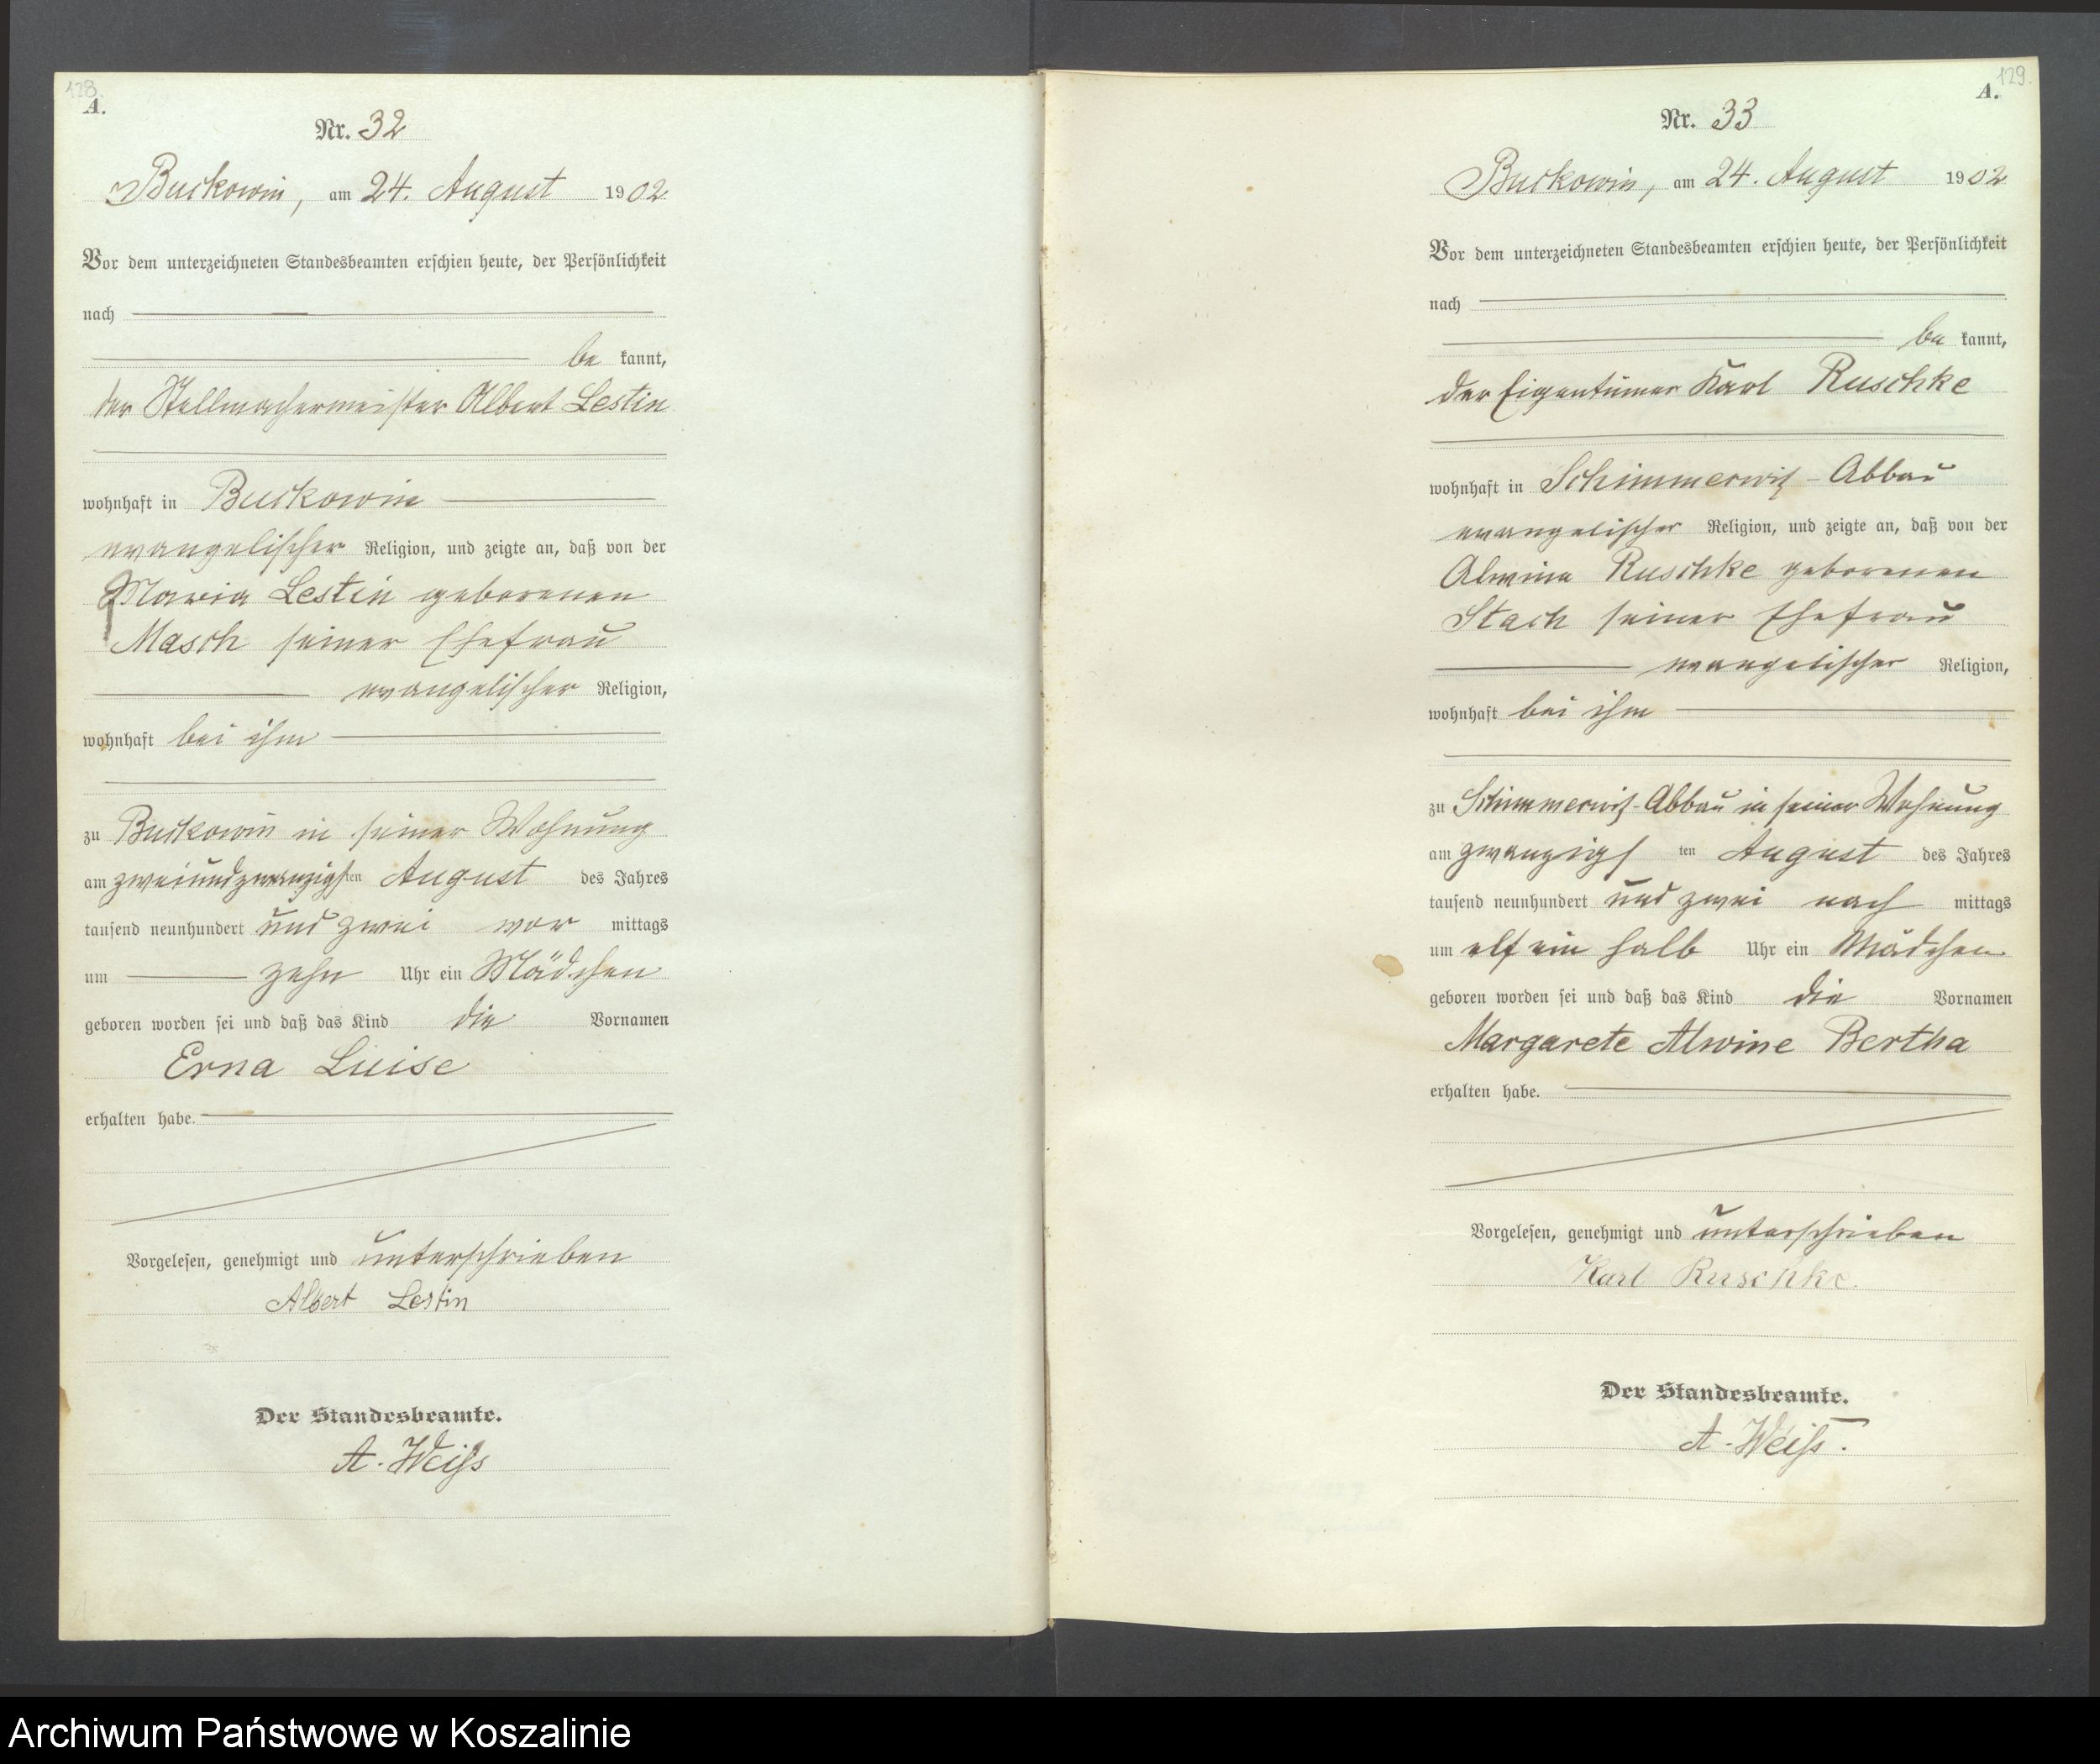 128.
A.
Nr. 32
Buckowin, am 24. August 1902
Vor dem unterzeichneten Standesbeamten erschien heute, der Persönlichkeit
nach
be kannt,
der Stellmachermeister Albert Lestin
wohnhaft in Buckowin
evangelischer Religion, und zeigte an, daß von der
Maria Lestin geborenen
Masch seiner Ehefrau
evangelischer Religion,
wohnhaft bei ihm
zu Buckowin in seiner Wohnung
am zweiundzwanzigsten August des Jahres
tausend neunhundert und zwei vor mittags
um zehn Uhr ein Mädchen
geboren worden sei und daß das Kind die Vornamen
Erna Luise
erhalten habe.
Vorgelesen, genehmigt und unterschrieben
Albert Lestin
Der Standesbeamte.
A. Weiß
129.
A.
Nr. 33
Buckowin, am 24. August 1902
Vor dem unterzeichneten Standesbeamten erschien heute, der Persönlichkeit
nach
be kannt,
der Eigentümer Karl Ruschke
wohnhaft in Schimmerwitz-Abbau
evangelischer Religion, und zeigte an, daß von der
Alwine Ruschke geborenen
Stach seiner Ehefrau
evangelischer Religion,
wohnhaft bei ihm
zu Schimmerwitz-Abbau in seiner Wohnung
am zwanzigs ten August des Jahres
tausend neunhundert und zwei nach mittags
um elf ein halb Uhr ein Mädchen
geboren worden sei und daß das Kind die Vornamen
Margarete Alwine Bertha
erhalten habe.
Vorgelesen, genehmigt und unterschrieben
Karl Ruschke.
Der Standesbeamte.
A. Weiß.
Archiwum Państwowe w Koszalinie